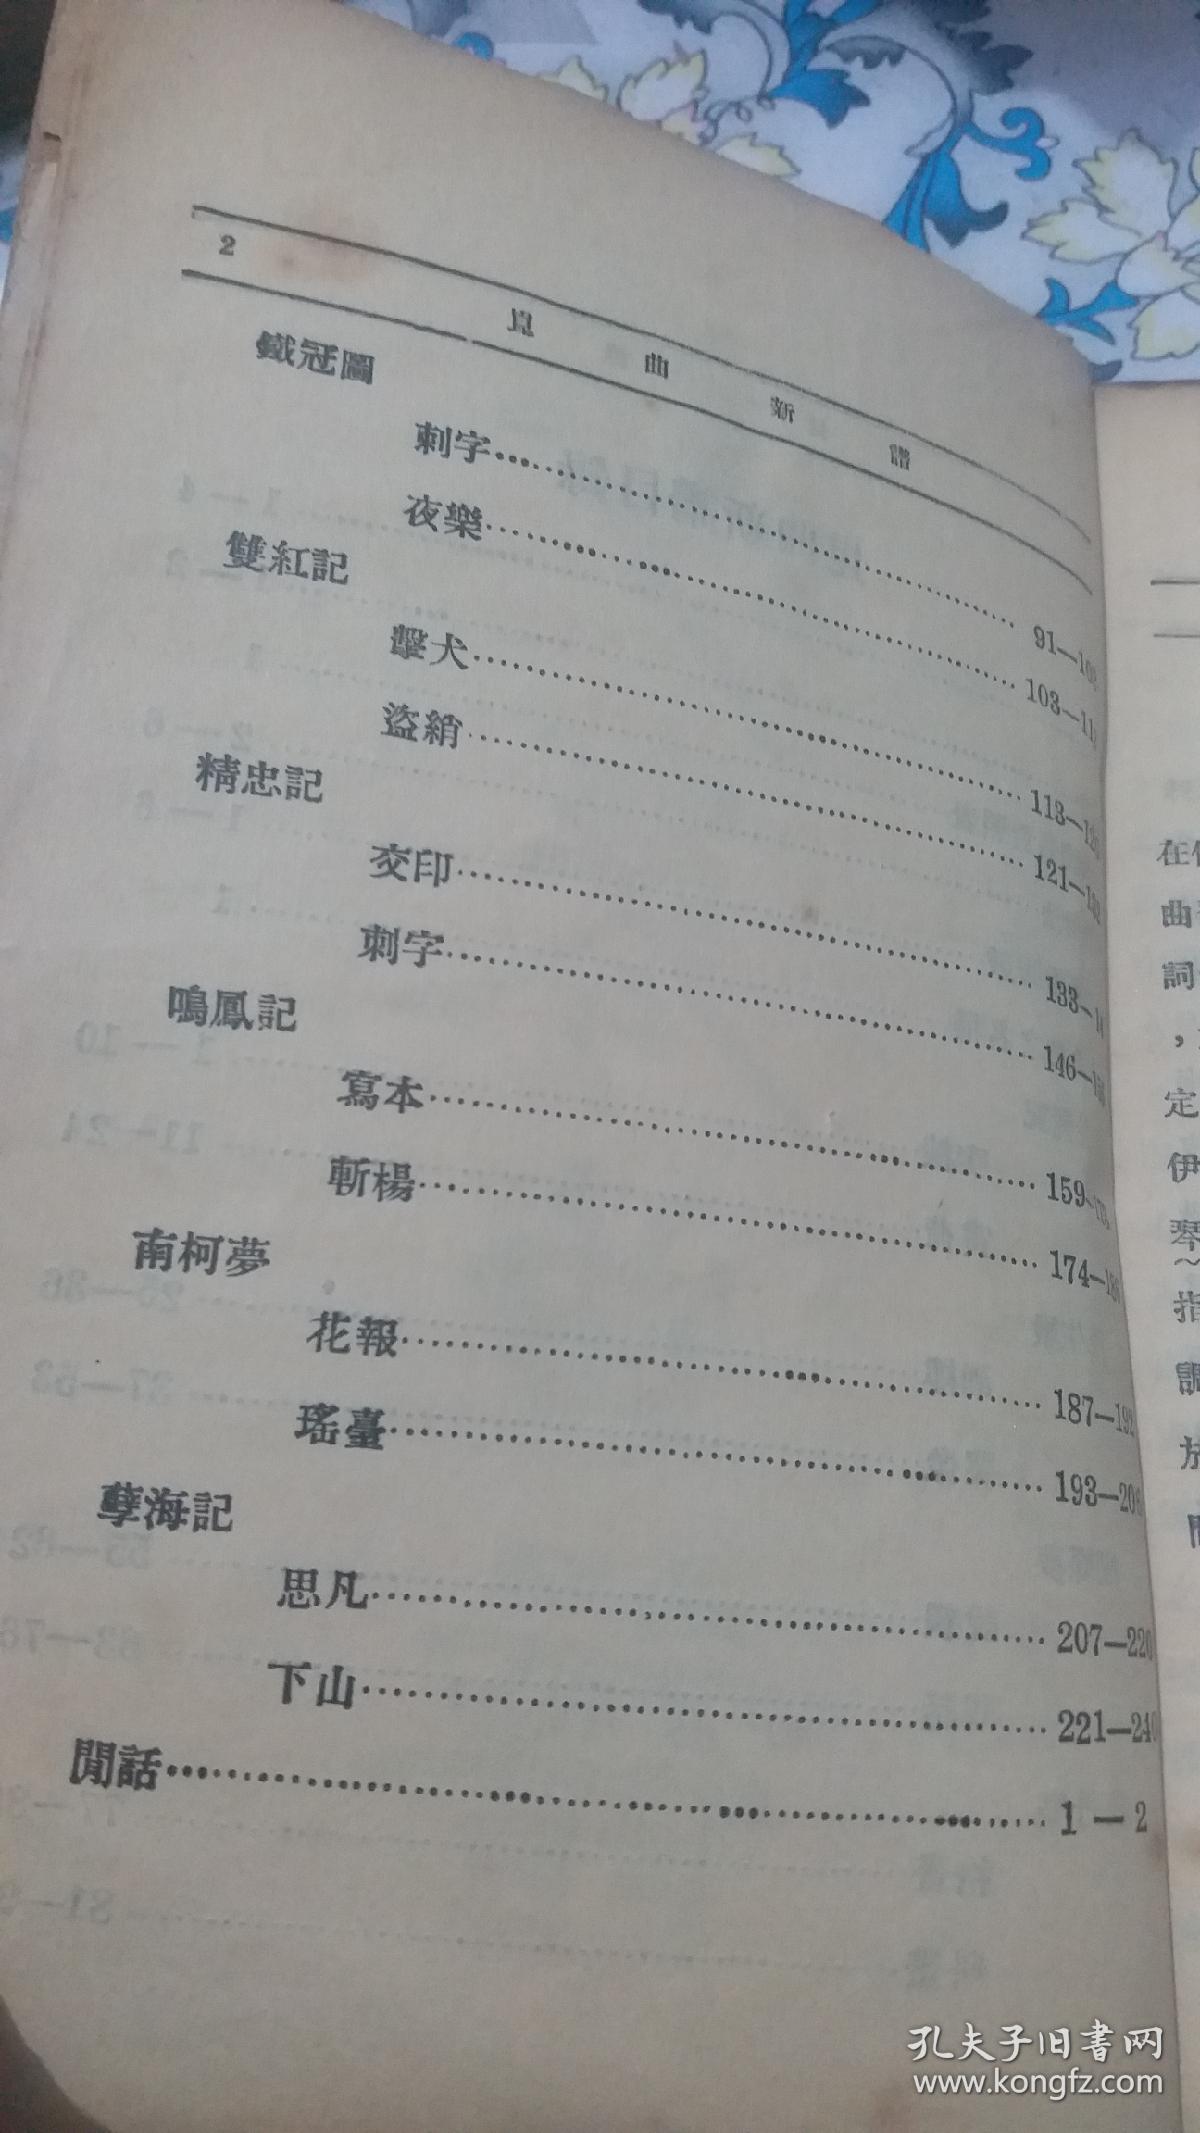 2
崑曲新譜
鐵冠圖
刺字……91—102
夜樂……103—11
雙紅記
擊犬……113—120
盜綃……121—132
精忠記
交印……133—14
刺字……146—158
鳴鳳記
寫本……159—173
斬楊……174—186
南柯夢
花報……187—192
瑤臺……193—206
孽海記
思凡……207—220
下山……221—240
閒話……1—2
在
曲
詞
，
定
伊
琴
指
調
孔夫子旧书网
www.kongfz.com